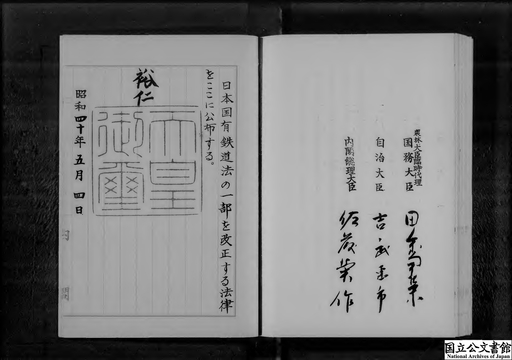 農林大臣臨時代理
国務大臣 田中角榮
自治大臣 吉武恵市
内閣総理大臣 佐藤榮作
日本国有鉄道法の一部を改正する法律
をここに公布する。
裕仁
天皇
御璽
昭和四十年五月四日
国立公文書館
National Archives of Japan